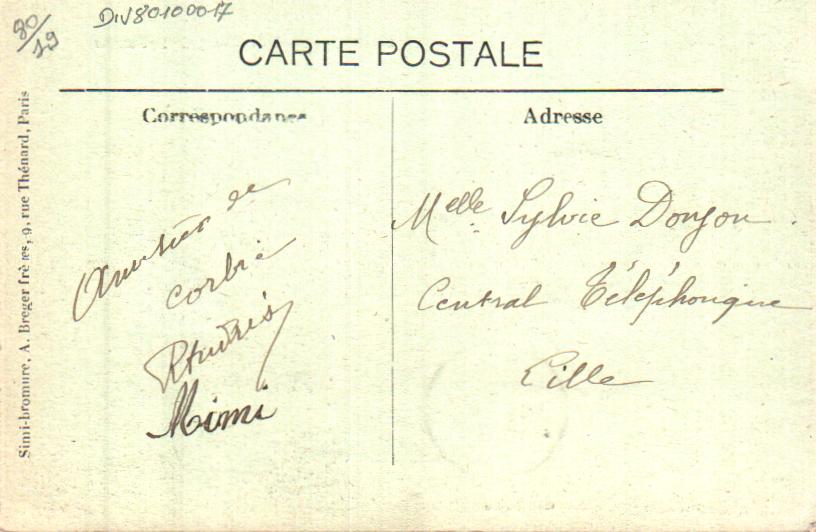 80/19
DIV80100017
CARTE POSTALE
Correspondance
Adresse
Simi-bromure, A. Breger frères, 9, rue Thénard, Paris
Amitiés de
corbie
Mimi
Melle Sylvie Donjon
Central Téléphonique
Lille